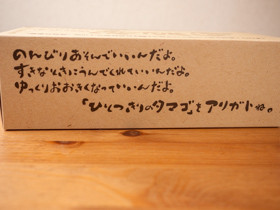 のんびりあそんでいいんだよ。
すきなときにうんでくれていいんだよ。
ゆっくりおおきくなっていいんだよ。
「ひとつきりのタマゴ」をアリガトね。